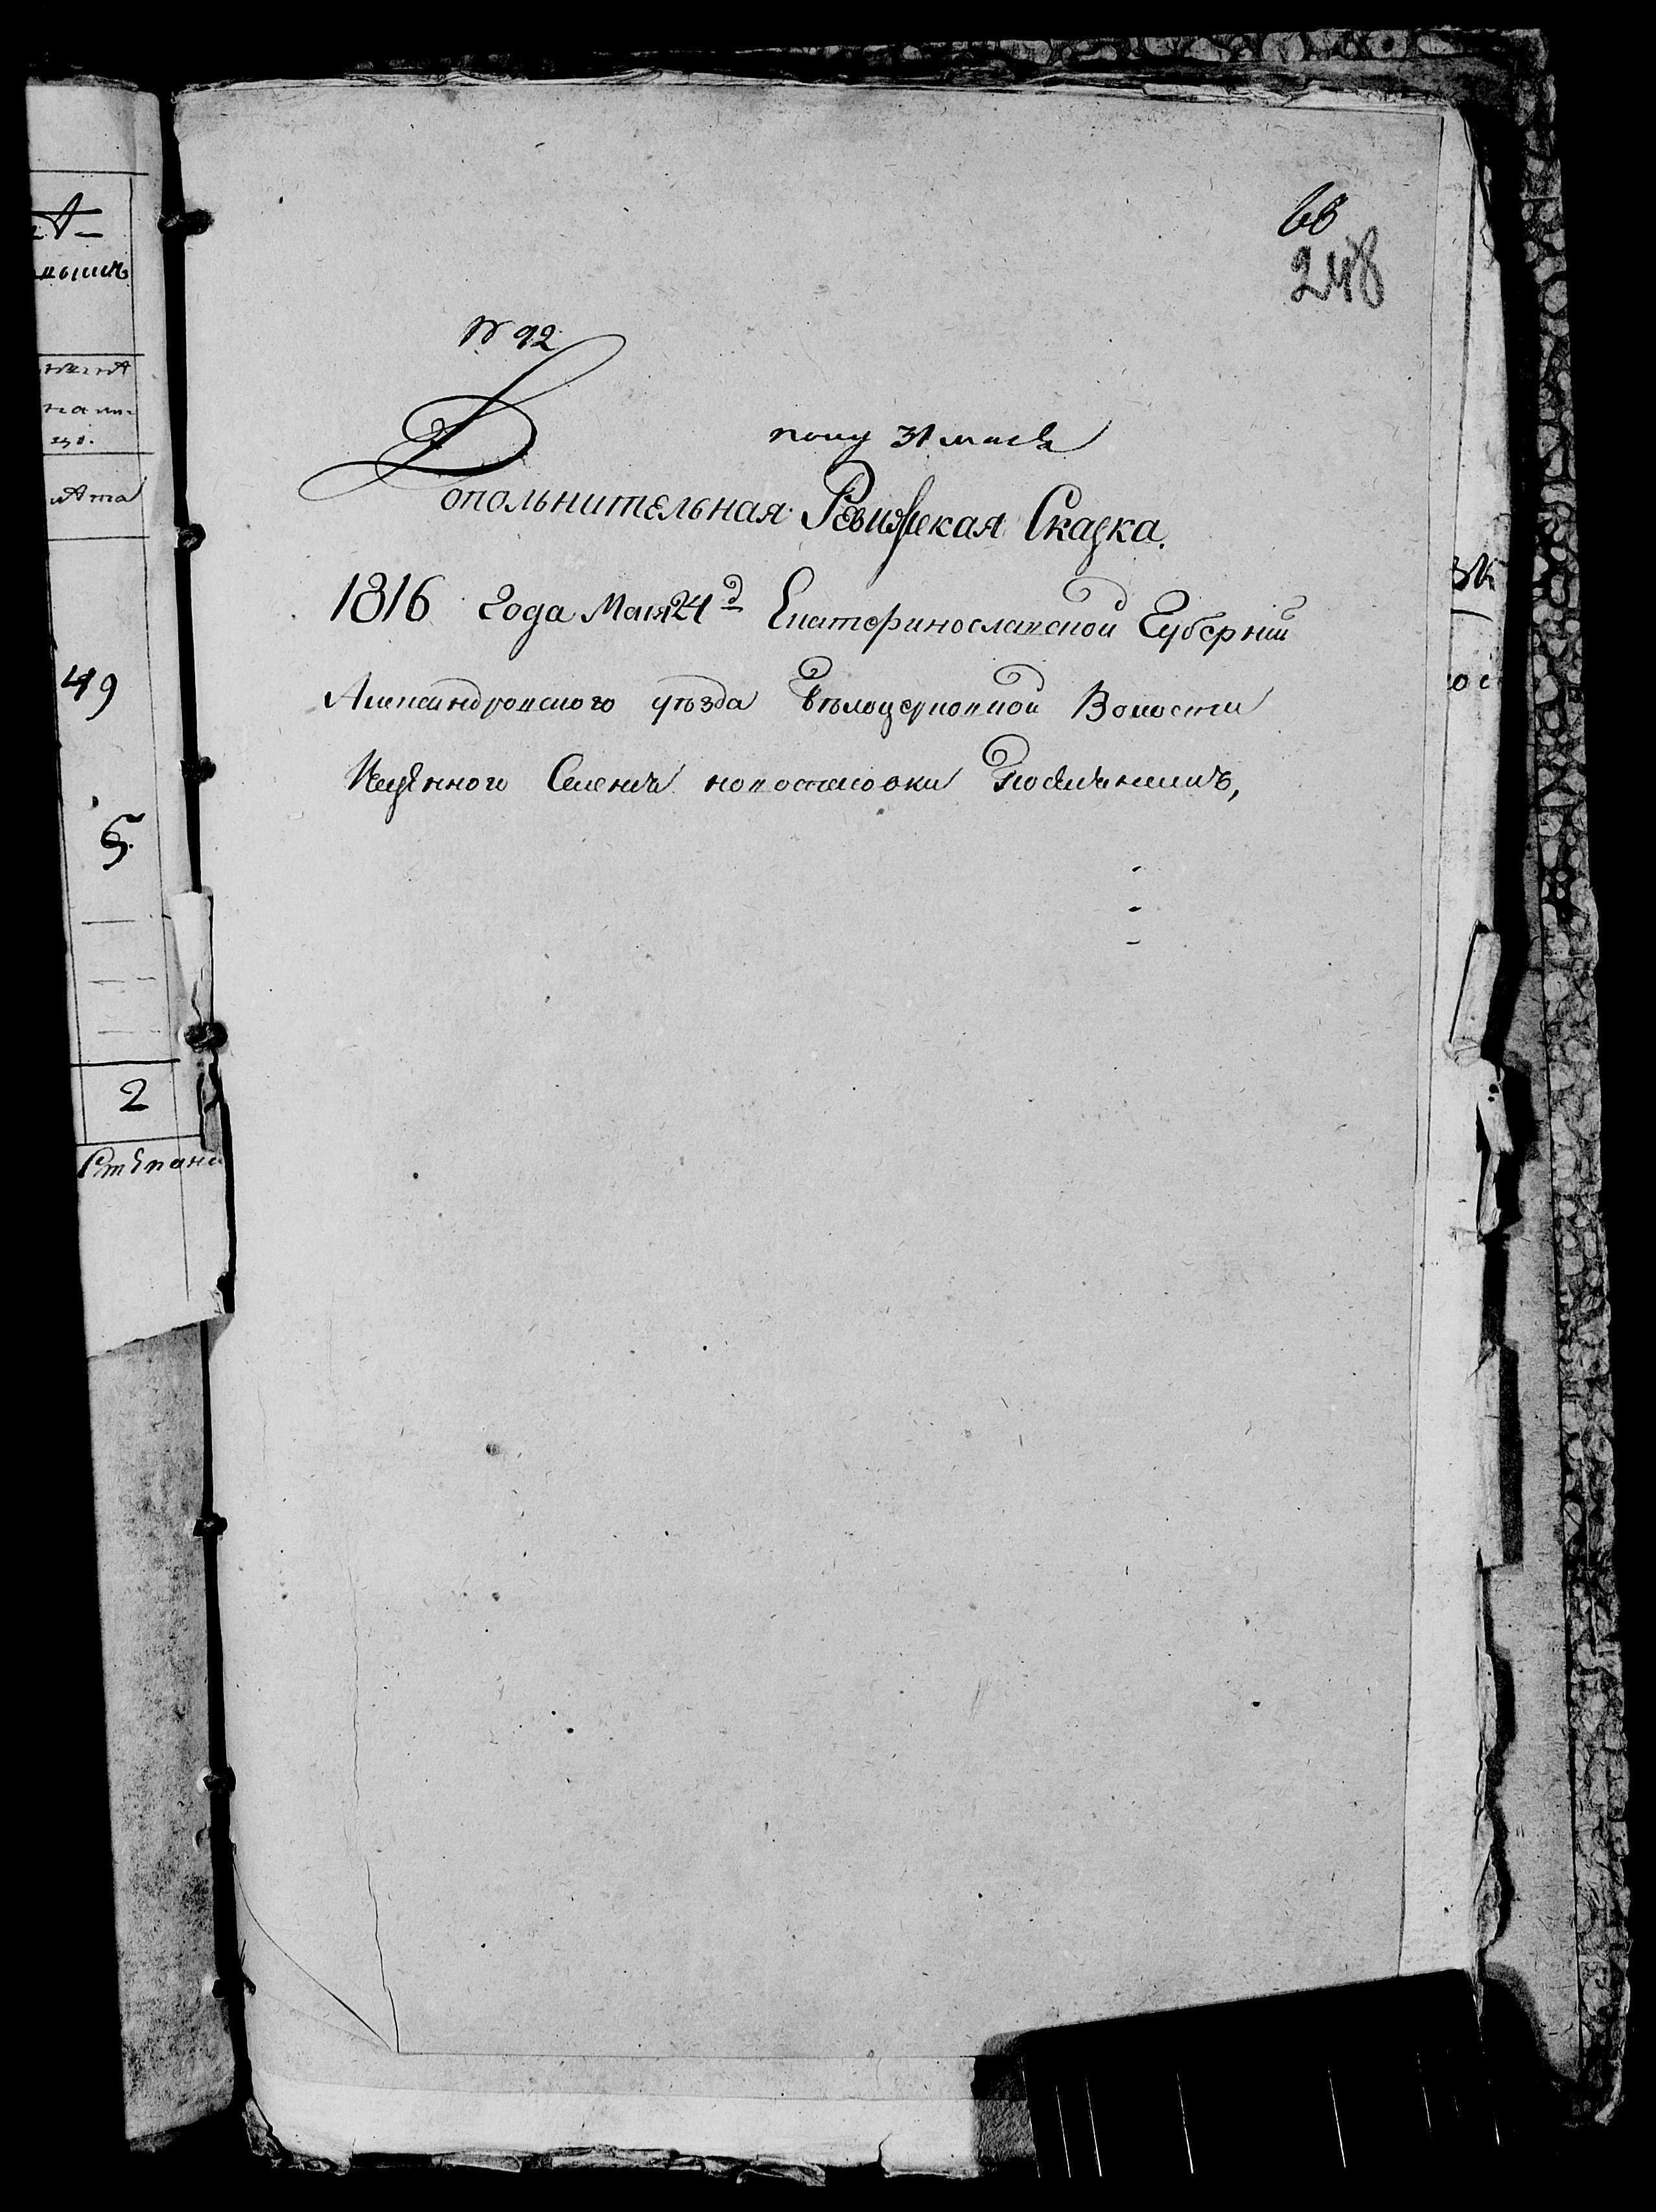 68
248
№ 92
полу 31 мая
Допольнительная Ревижская Сказка.
1816 Года Маия 24д Екатеринославской Губернии
Александровского уѣзда Бѣлоцерковной Волости
Казенного Селения новоспасовки
49
5.
2
Степана